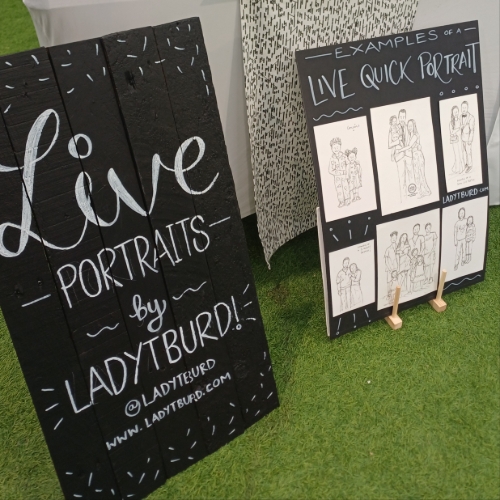 Live
PORTRAITS
by
LADYTBURD!
@LADYTBURD
WWW.LADYTBURD.COM
EXAMPLES OF A
LIVE QUICK PORTRAIT
LADYTBURD.COM